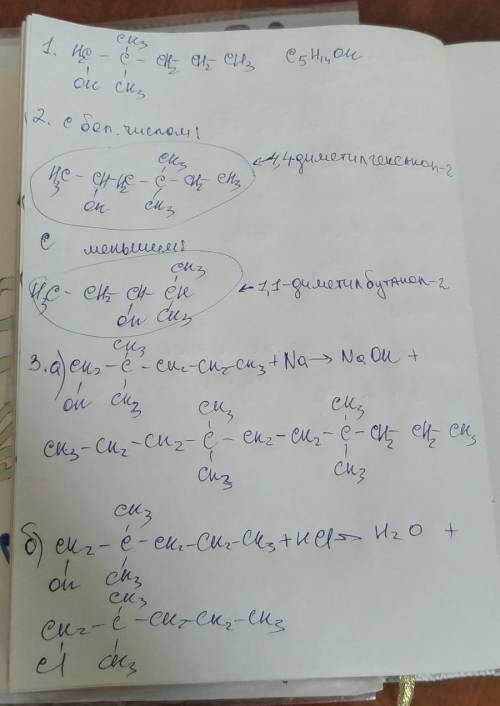 CH3
1. H2C - C - CH2 CH2 CH3 C5H14OH
OH CH3
2. с бол. числом:
CH3
H3C - CH - H2C - C - CH2 - CH3 4,4-диметилгексанол-2
OH CH3
С меньшем:
CH3
H3C - CH2 - CH - CH 1,1-диметилбутанол-2
OH CH3
CH3
3. а) CH2 - C - CH2 - CH2 CH3 + Na → NaOH +
OH CH3
CH3 CH3
CH3 - CH2 - CH2 - C - CH2 - CH2 - C - CH2 CH2 CH3
CH3 CH3
CH3
б) CH2 - C - CH2 - CH2 - CH3 + HCl → H2O +
OH CH3
CH3
CH2 - C - CH2 - CH2 - CH3
Cl CH3